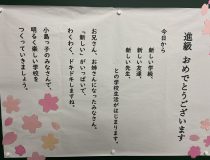 進級 おめでとうございます
今日から
新しい学校、
新しい友達、
新しい先生、
との学校生活がはじまります。
お兄さん、お姉さんになったみなさん。
「新しい」がいっぱいで、
わくわく、ドキドキしますね。
小島っ子のみなさんで、
明るく楽しい学校を
つくっていきましょう。